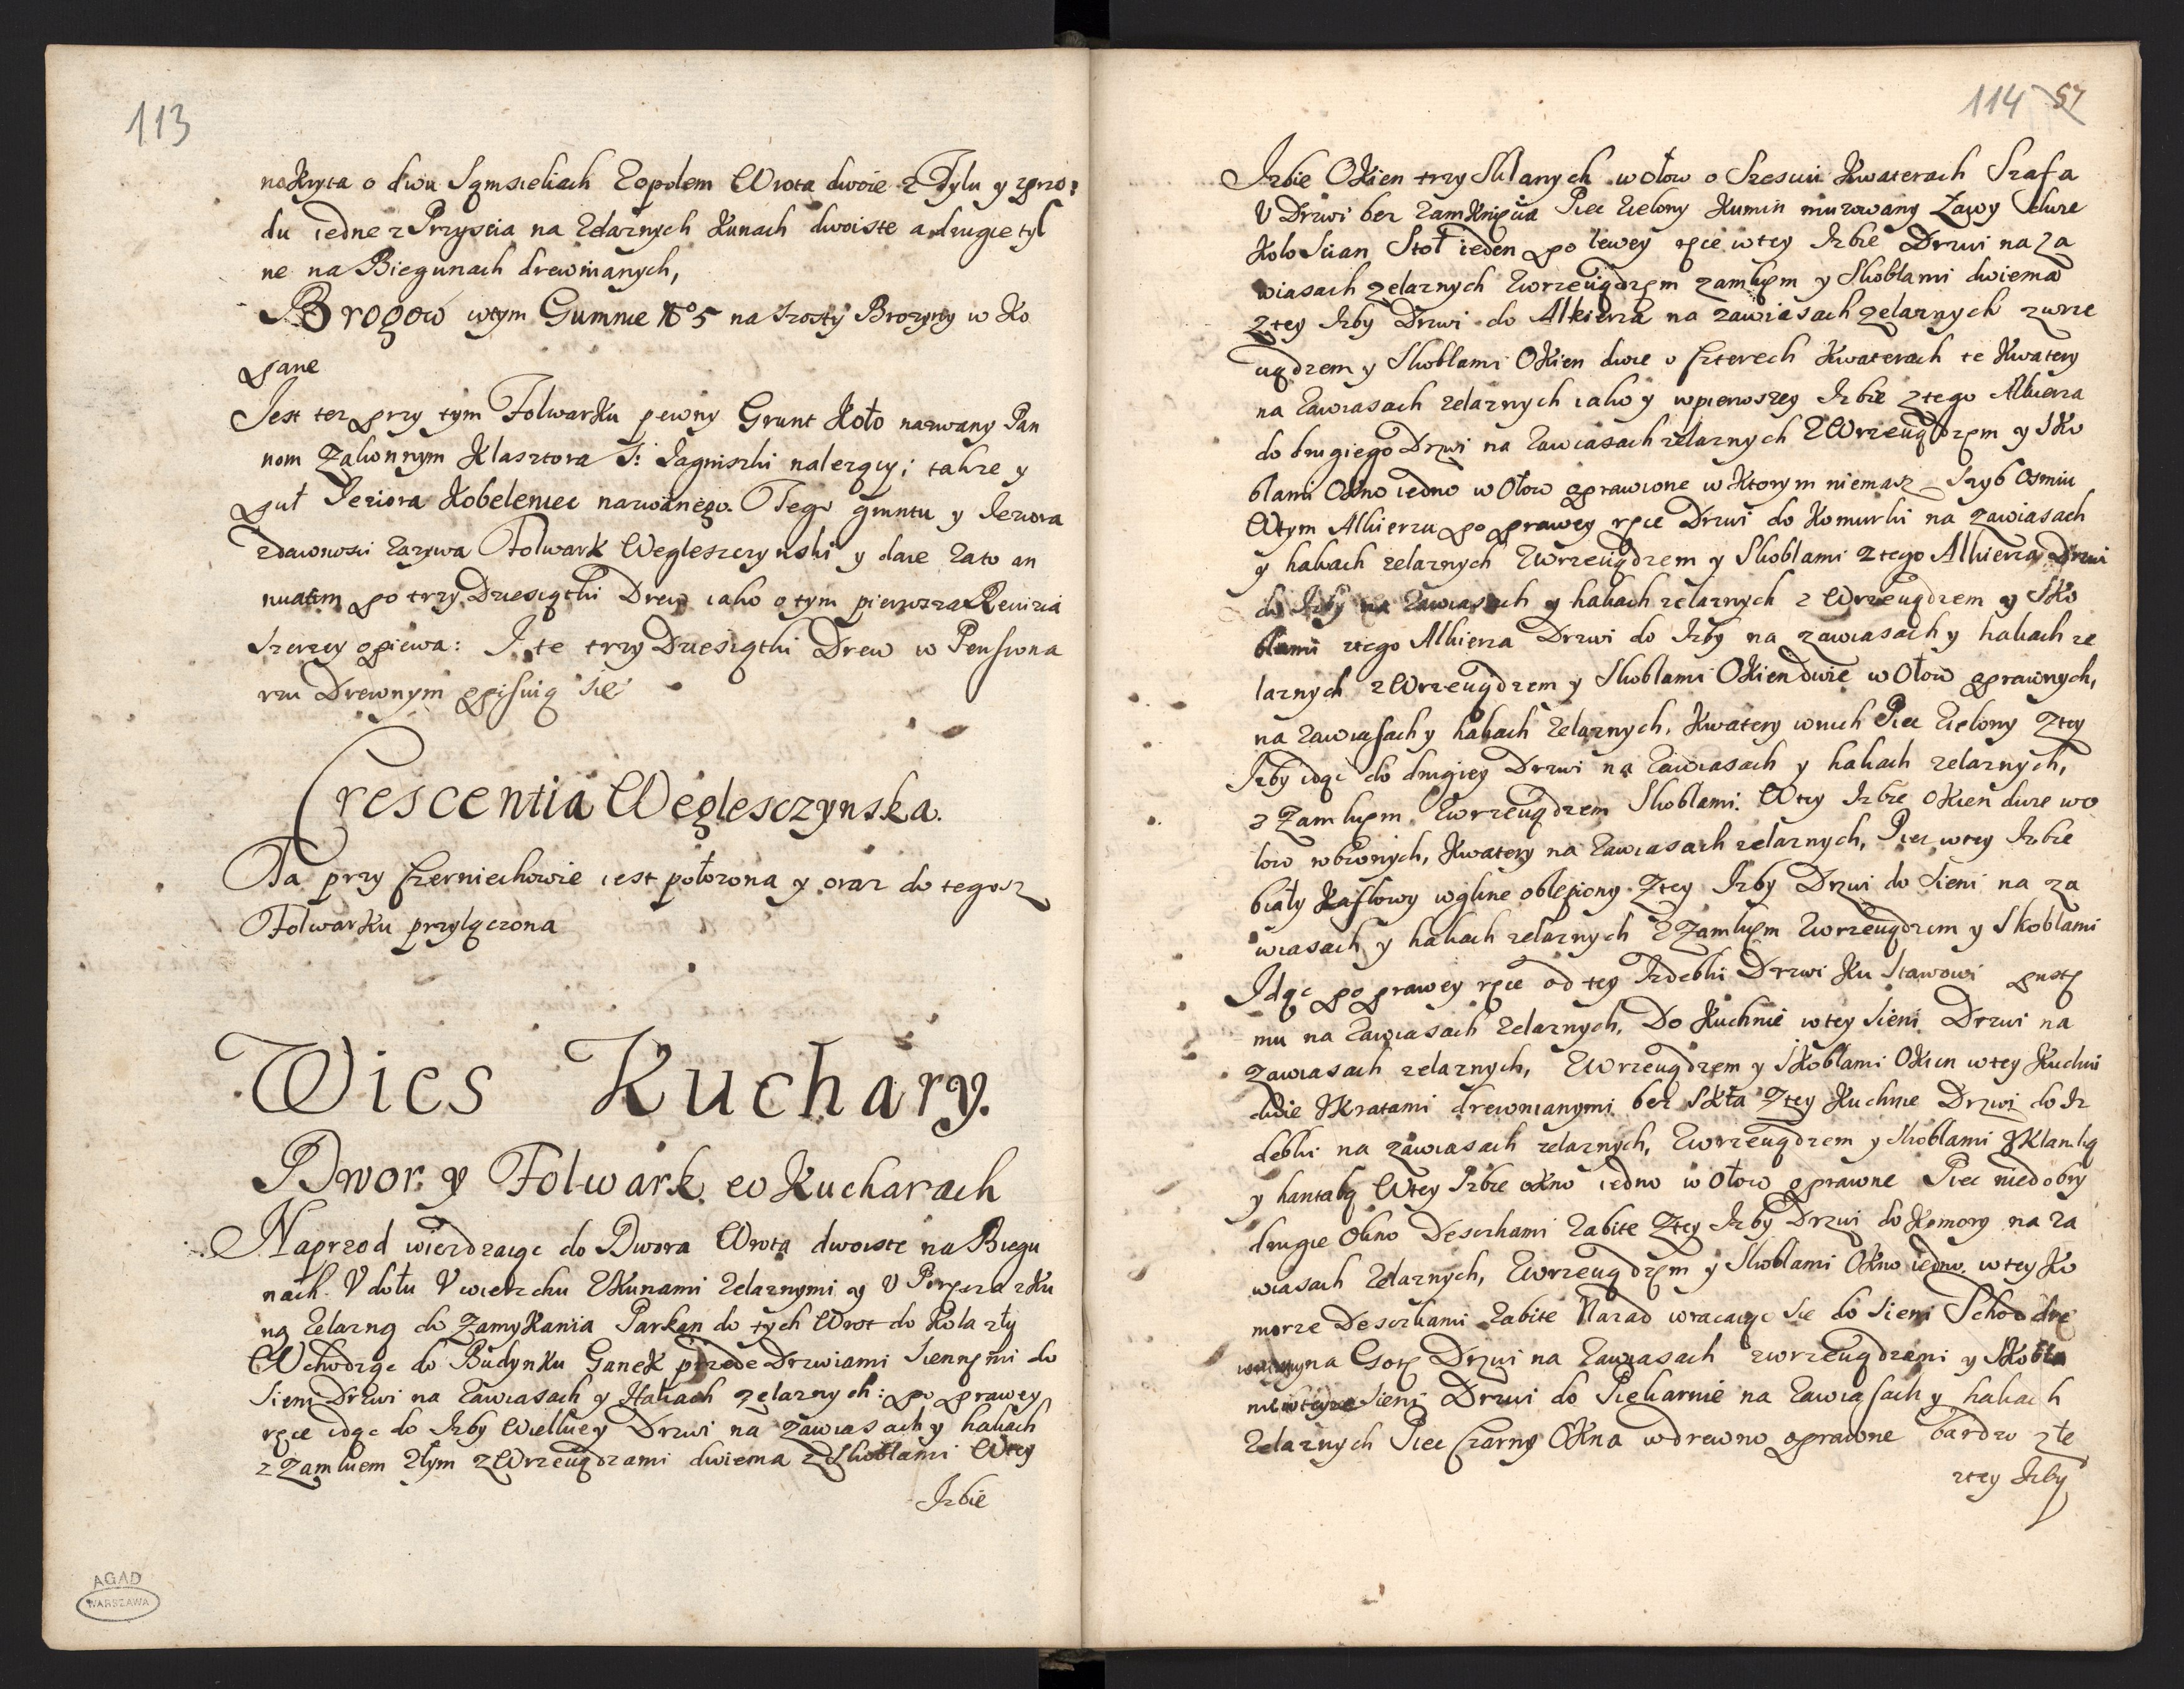 113
nakryta o dwu Sąmsieliach Zopolem Wrota dwoie z Tylu y zprzo:
du iedne z Przyscia na Zelaznych Kunach dwoiste a drugie tyl
ne na Biegunach drewnianych,
Brogow wtym Gumnie No 5 na szosty Brozyny w Ko
pane
Jest tez przy tym Folwarku pewny Grunt Koło nazwany Pan
nom Zakonnym Klasztora S: Jagniszki nalezący; takze y
puł Jeziora Kobeleniec nazwanego. Tego gruntu y Jeziora
zdawnosci Zazywa Folwark Wegleszczynski y daie Zato an
nuatim po trzy Dziesiątki Drew iako o tym pierwsza Rewizia
Szerzey opiewa: I te trzy Dziesiątki Drew w Pensiona
rzu Drewnym opisuią się
Crescentia Węglesczynska.
Ta przy Czerniechowie iest położona y oraz do tegosz
Folwarku przyłączona
Wies Kuchary.
Dwor y Folwark w Kucharach
Naprzod wiezdzaiąc do Dwora Wrota dwoiste na Biegu
nach V dołu V wierzchu zKunami Zelaznymi y V zKu
ną Zelazną do Zamykania Parkan do tych Wrot do Kola zły
Wchodząc do Budynku Ganek przede Drzwiami Siennymi do
Sieni Drzwi na Zawiasach y Hakach zelaznych: po prawey
ręce idąc do Izby Wielkiey Drzwi na Zawiasach y hakach
z Zamkiem złym z Wrzeuądzami dwiema z Skoblami Wtey
Izbie
AGAD
WARSZAWA
114 57
Izbie Okien trzy Sklanych w ołow o Szesciu Kwaterach Szafa
V Drzwi bez Zamknięcia Piec Zielony Kumin murowany Ławy dwie
Koło Scian Stoł ieden po lewey ręce wtey Izbie Drzwi na Za
wiasach zelaznych Zwrzeuądzęm zamkęm y Skoblami dwiema
Ztey Izby Drzwi do Alkierza na zawiasach zelaznych zwrze
uądzem y Skoblami Okien dwie o Czterech Kwaterach te Kwatery
na Zawiasach zelaznych iako y wpierwszey Izbie ztego Alkierza
do drugiego Drzwi na Zawiasach zelaznych ZWrzeuądzęm y Sko
blami Okno iedno w Ołow oprawione w Ktorym niemasz Szyb Osmiu
Wtym Alkierzu po prawey ręce Drzwi do Komurki na zawiasach
y hakach zelaznych Zwrzeuądzem y Skoblami Ztego Alkierza Drzwi
do Izby na Zawiasach y hakach zelaznych z Wrzeuądzem y Sko
blami ztego Alkierza Drzwi do Izby na zawiasach y hakach ze
laznych zWrzeuądzem y Skoblami Okien dwie w Ołow oprawnych,
na Zawiasach y hakach Zelaznych, Kwatery wnich Piec Zielony Ztey
Izby idąc do drugiey Drzwi na Zawiasach y hakach zelaznych,
z Zamkęm Zwrzeuądzem Skoblami. Wtey Izbie Okien dwie wo
łow robionych, Kwatery na Zawiasach zelaznych, Piec wtey Izbie
biały Kaflowy wgline oblepiony Ztey Izby Drzwi do Sieni na za
wiasach y hakach zelaznych ZZamkęm Zwrzeuądzem y Skoblami
Idąc po prawey ręce od tey Izdebki Drzwi Ku Stawowi pustę
mu na Zawiasach Zelaznych, Do Kuchnie wtey Sieni Drzwi na
zawiasach zelaznych, ZWrzeuądzęm y Skoblami Okien wtey Kuchni
dwie zKratami drewnianymi bez Skła Ztey Kuchnie Drzwi do Iz
debki na zawiasach zelaznych, Zwrzeuądzem y Skoblami zKlamką
y hantabą Wtey Izbie okno iedno w Ołow oprawne Piec niedobry
drugie Okno Desczkami Zabite Ztey Izby Drzwi do Komory na za
wiasach Zelaznych, Zwrzeuądzęm y Skoblami Okno iedno wtey Ko
morze Desczkami Zabite Nazad wracaiąc Sie do Sieni Schod dre
wniany na Gorę Drzwi na Zawiasach zwrzeuądzami y Skobla
mi Sieni Drzwi do Piekarnie na Zawiasach y hakach
Zelaznych Piec Czarny Okna wdrewno oprawne bardzo złe
ztey Izby